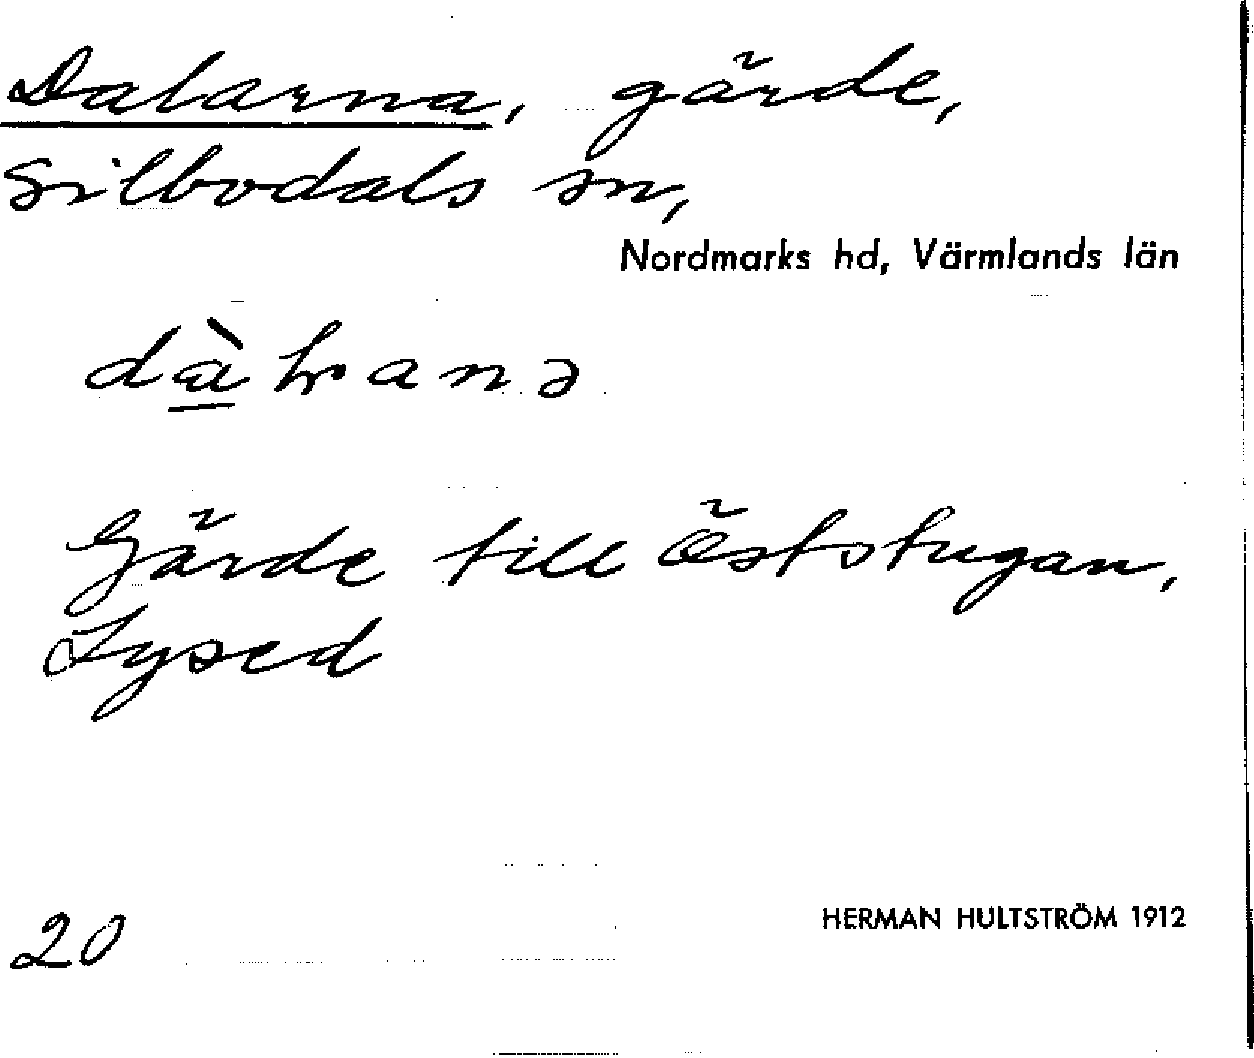 Dalarna, gärde,
Silbodals sn,
Nordmarks hd, Värmlands län
Gärde till Öststugan,
Lysed
20
HERMAN HULTSTRÖM 1912